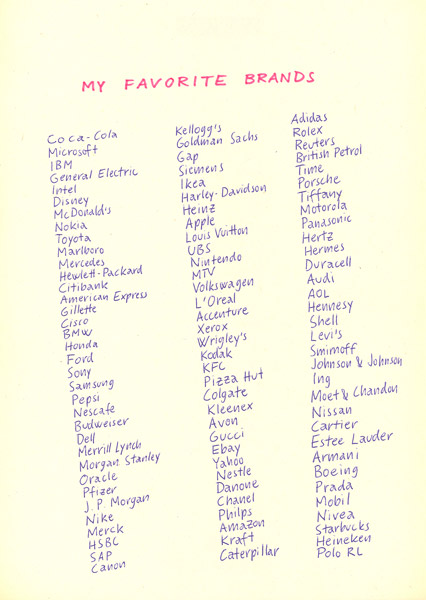 MY FAVORITE BRANDS
Coca-Cola
Microsoft
IBM
General Electric
Intel
Disney
McDonald's
Nokia
Toyota
Marlboro
Mercedes
Hewlett-Packard
Citibank
American Express
Gillette
Cisco
BMW
Honda
Ford
Sony
Samsung
Pepsi
Nescafe
Budweiser
Dell
Merrill Lynch
Morgan Stanley
Oracle
Pfizer
J.P. Morgan
Nike
Merck
HSBC
SAP
Canon
Kellogg's
Goldman Sachs
Gap
Siemens
Ikea
Harley-Davidson
Heinz
Apple
Louis Vuitton
UBS
Nintendo
MTV
Volkswagen
L'Oreal
Accenture
Xerox
Wrigley's
Kodak
KFC
Pizza Hut
Colgate
Kleenex
Avon
Gucci
Ebay
Yahoo
Nestle
Danone
Chanel
Philps
Amazon
Kraft
Caterpillar
Adidas
Rolex
Reuters
British Petrol
Time
Porsche
Tiffany
Motorola
Panasonic
Hertz
Hermes
Duracell
Audi
AOL
Hennesy
Shell
Levi's
Smirnoff
Johnson & Johnson
Ing
Moet & Chandon
Nissan
Cartier
Estee Lauder
Armani
Boeing
Prada
Mobil
Nivea
Starbucks
Heineken
Polo RL